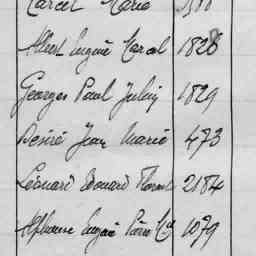 Marcel Marie
Albert Eugène Marcel 1828
Georges Paul Julien 1829
Désiré Jean Marie 473
Léonard Edouard 2184
Alphonse Eugène Pierre 1079